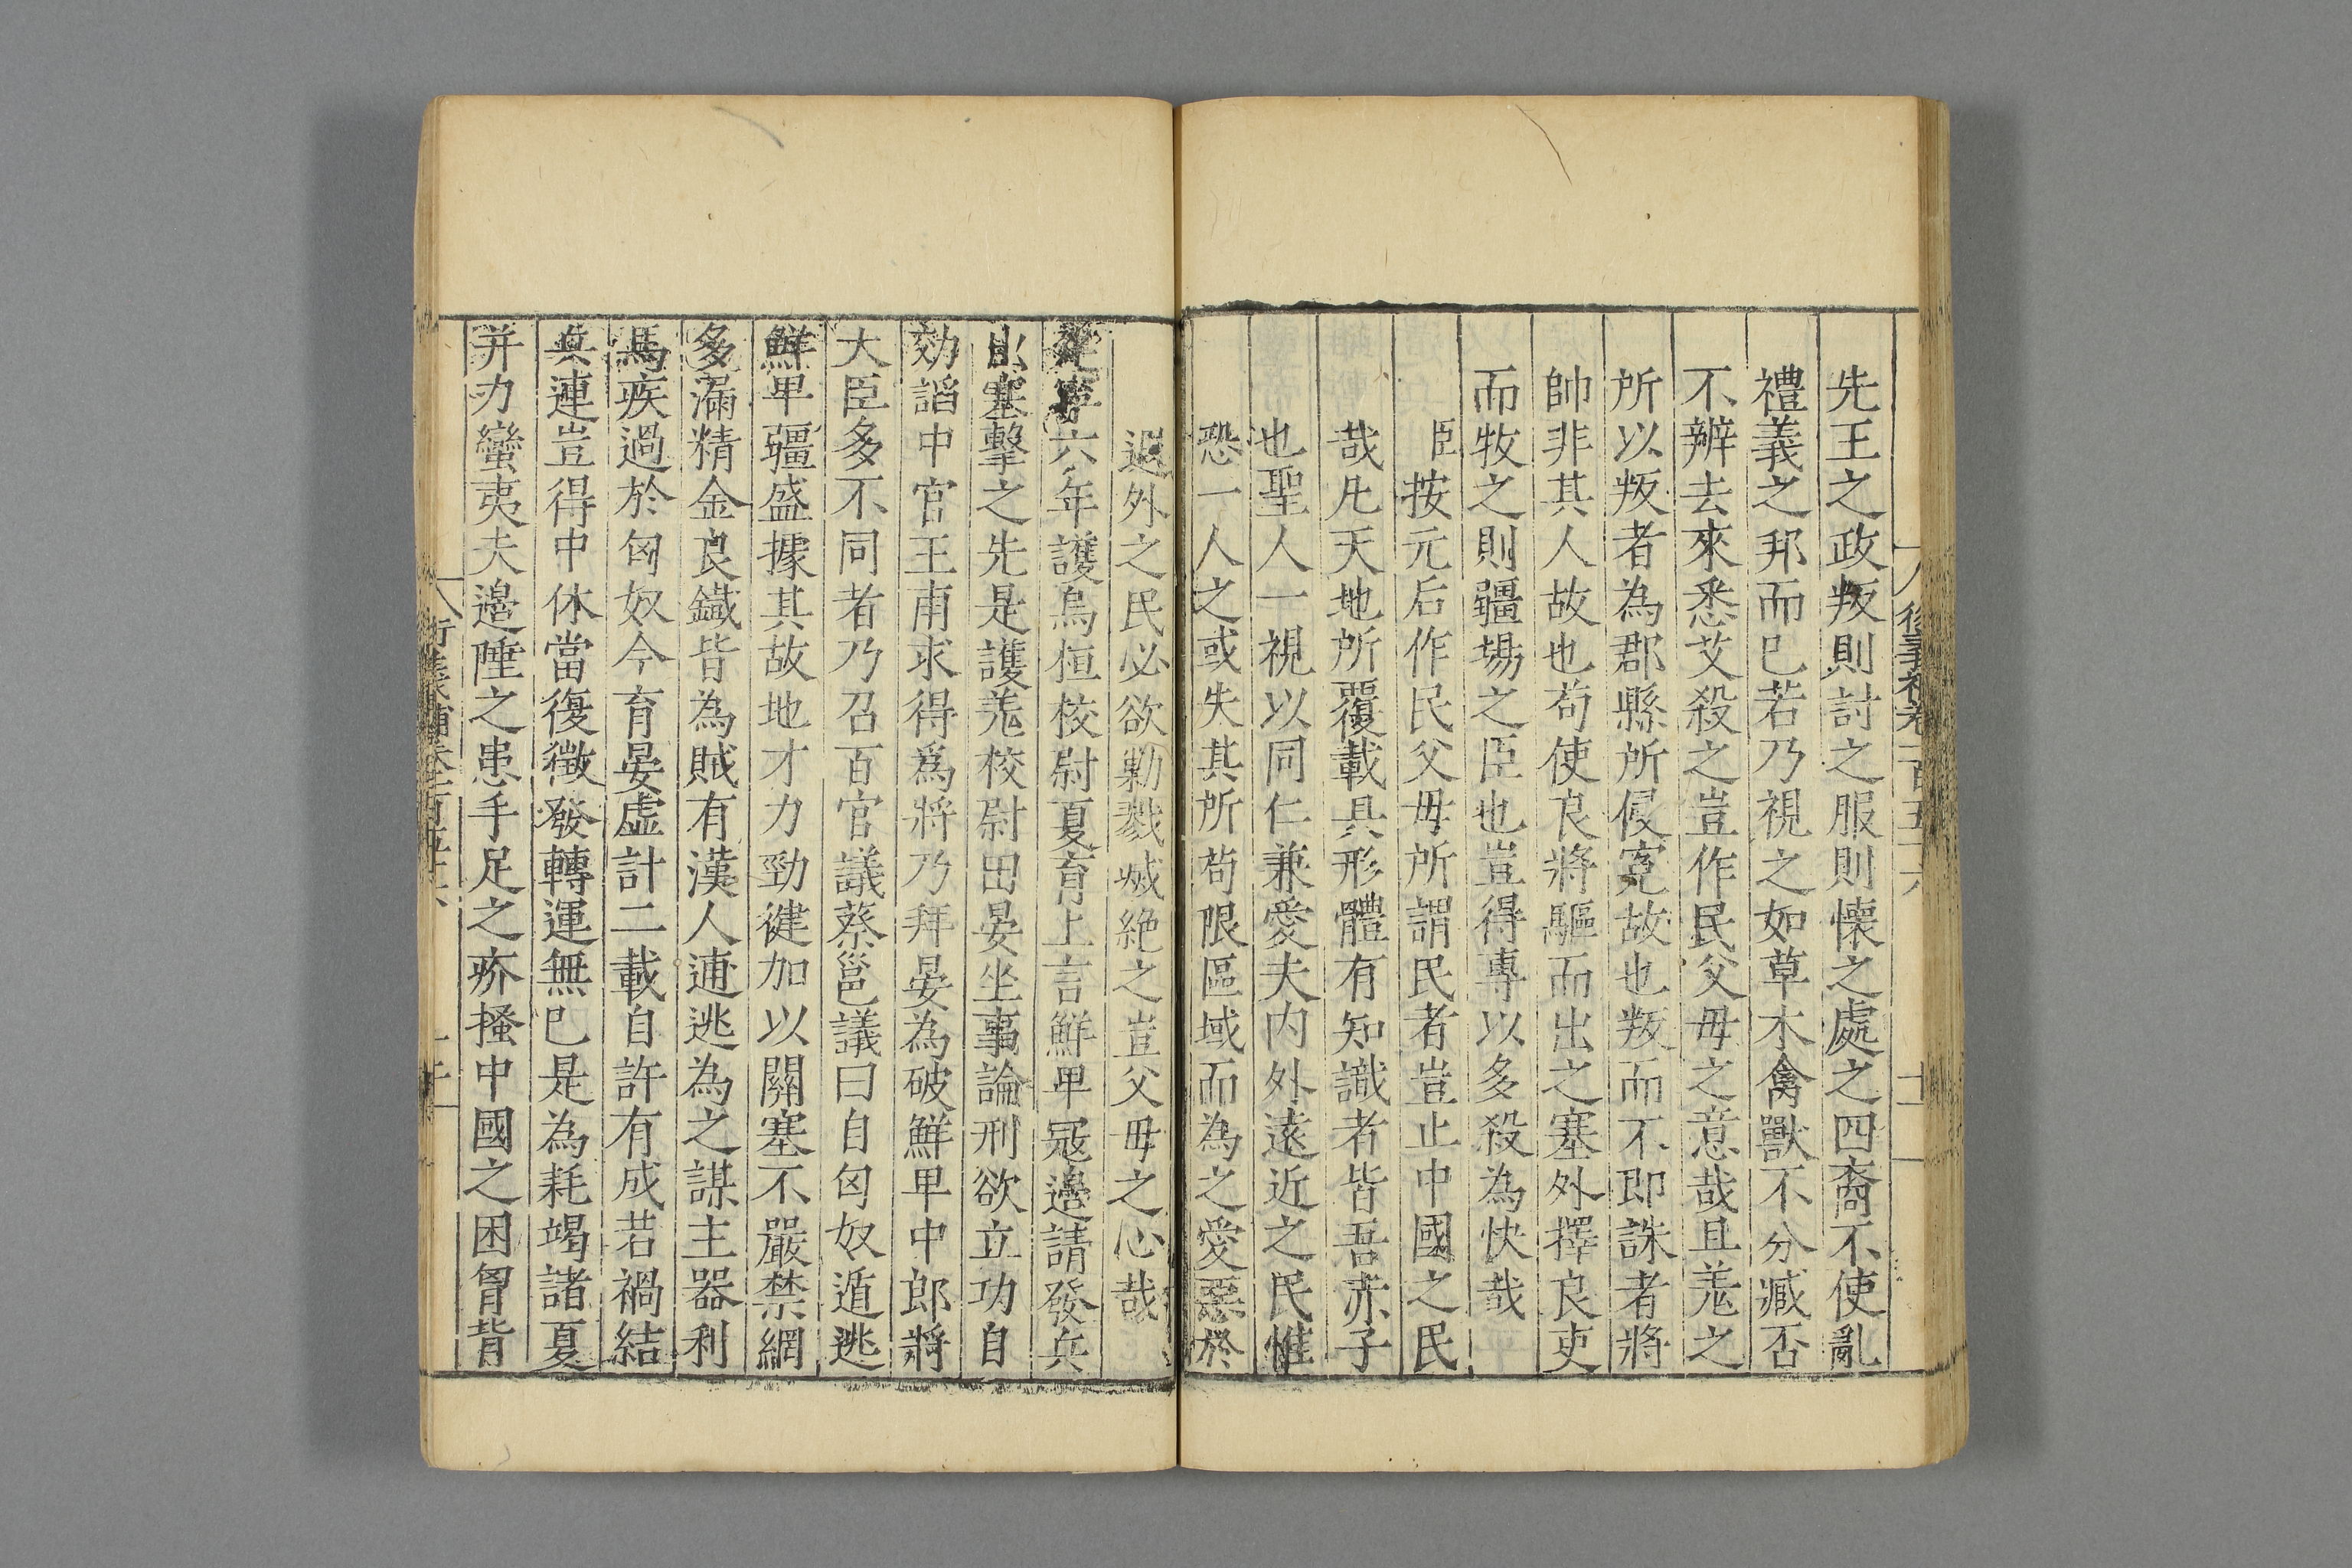 先王之政叛則討之服則懐之處之四裔不使亂
禮義之邦而已若乃視之如草木禽獸不分臧否
不辨去來悉艾殺之豈作民父毋之意哉且羌之
所以叛者為郡縣所侵寃故也叛而不即誅者將
帥非其人故也苟使良將驅而出之塞外擇良吏
而牧之則疆場之臣也豈得專以多殺為快哉
臣按元后作民父毋所謂民者豈止中國之民
哉凡天地所覆載具形體有知識者皆吾赤子
也聖人一視以同仁兼愛夫内外遠近之民惟
恐一人之或失其所苟限區域而為之愛惡於
遐外之民必欲勦戮滅絶之豈父毋之心哉
六年護烏桓校尉夏育上言鮮卑冦邊請發兵
出塞擊之先是護羌校尉田晏坐事論刑欲立功自
効謟中官王甫求得爲將乃拜晏為破鮮卑中郎將
大臣多不同者乃召百官議蔡邕議曰自匈奴遁逃
鮮卑疆盛據其故地才力勁健加以關塞不嚴禁網
多漏精金良鐵皆為賊有漢人逋逃為之謀主器利
馬疾過於匈奴今育晏虛計二載自許有成若禍結
兵連豈得中休當復徵發轉運無已是為耗竭諸夏
并力蠻夷夫邉陲之患手足之疥搔中國之困胷背